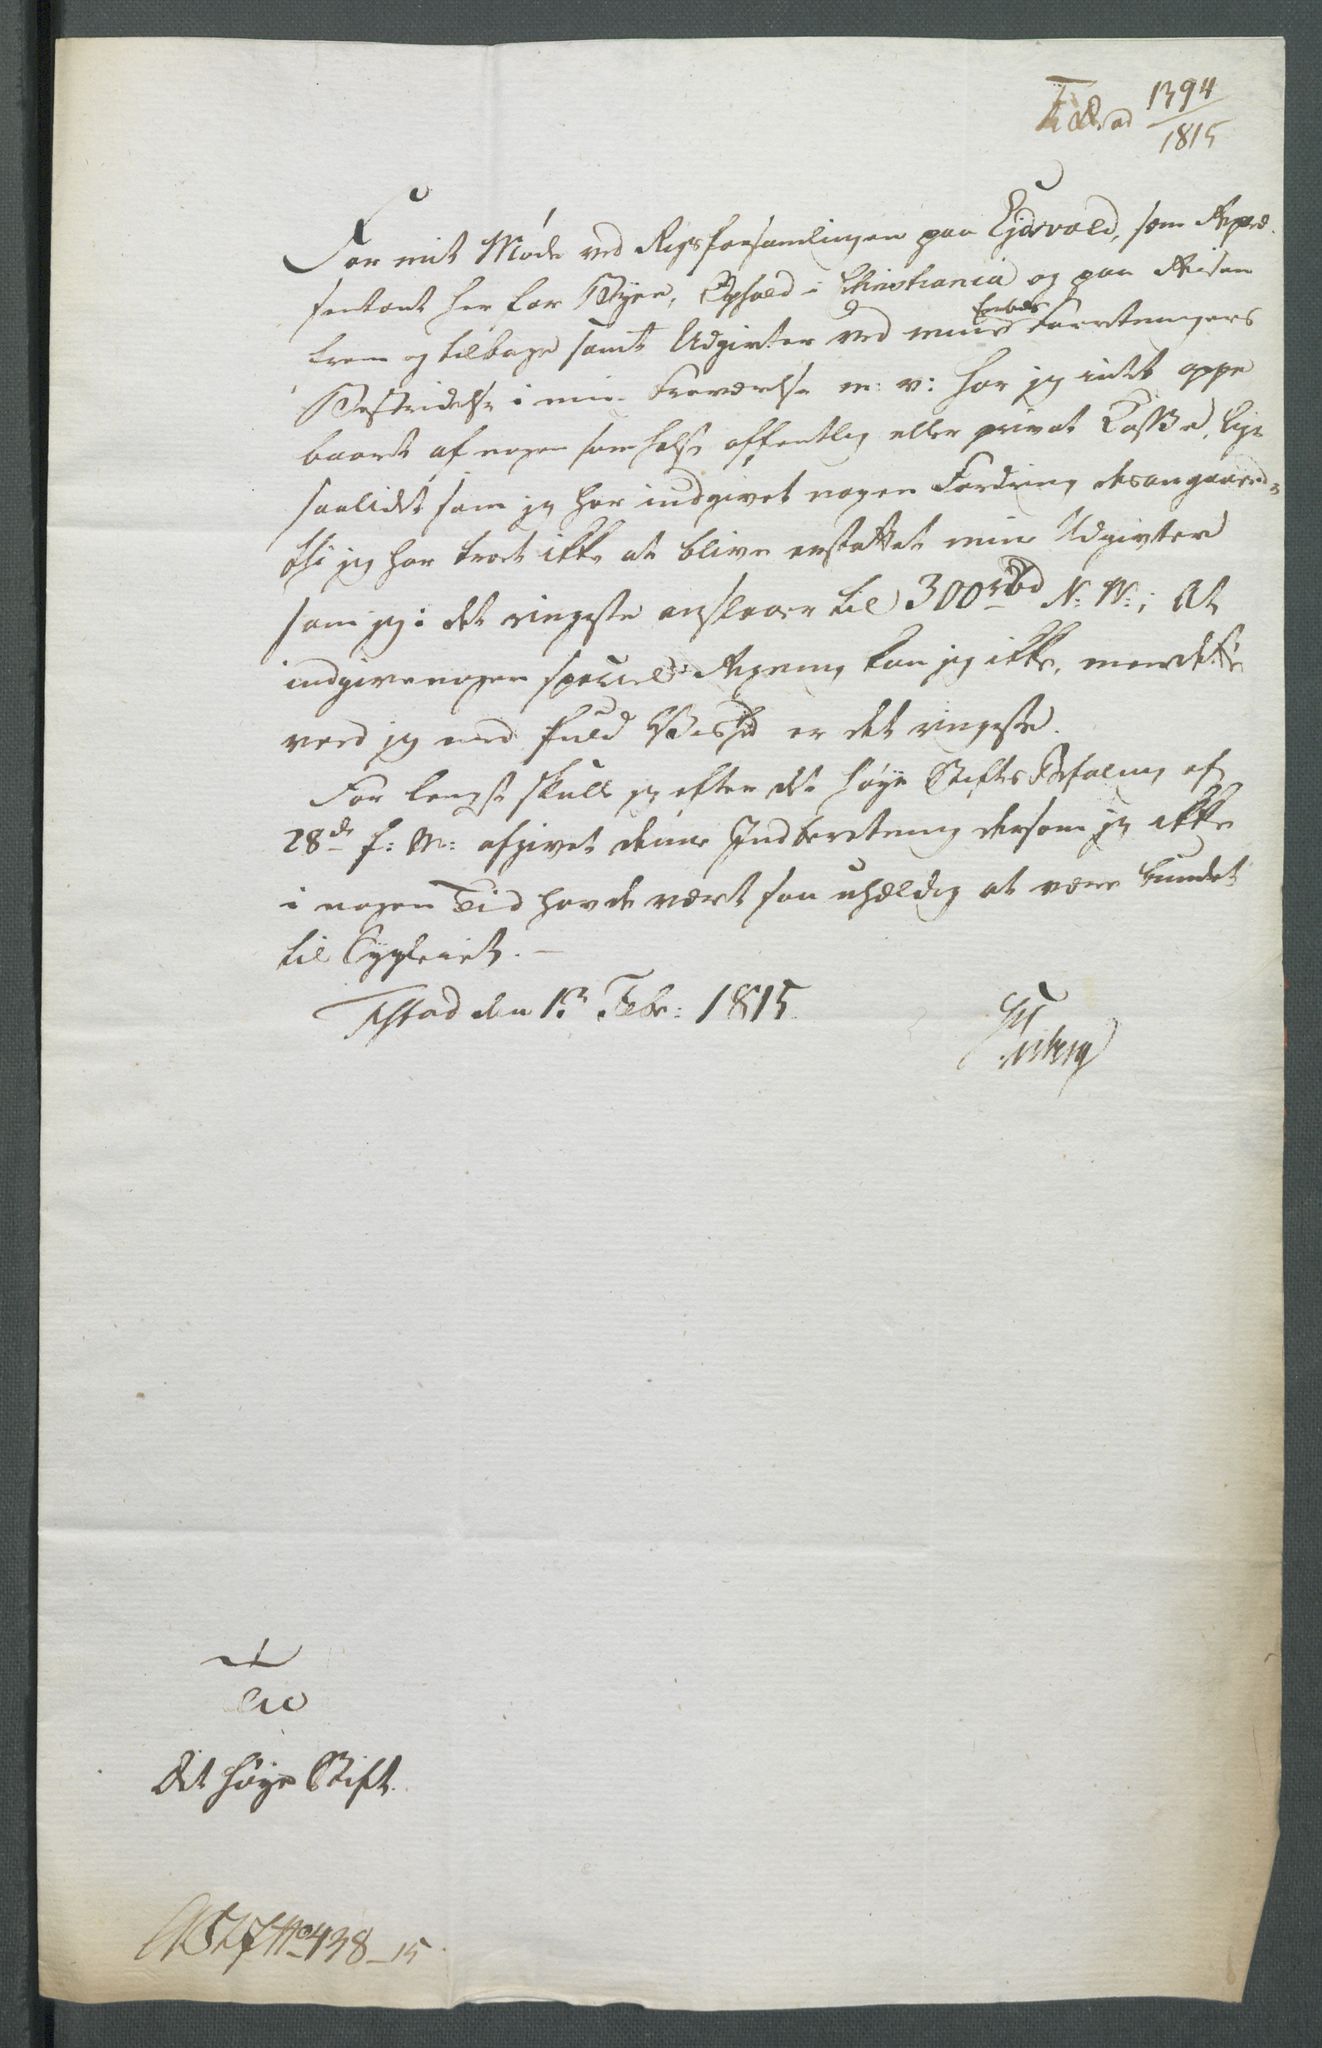 ad 1394
1815
For mit Møde ved Rigsforsamlingen paa Eidsvold, som Repræ-
sentant her for Byen, Ophold i Christiania og paa Reisen
frem og tilbage samt Udgivter ved mine Embeds Forretningers
Bestridelse i min Fraværelse m: v: har jeg intet oppe
baaret af nogen somhelst offentlig eller privat Cassse, lige
saalidet som jeg har indgivet nogen Fordring desangaaende
thi jeg har troet ikke at blive erstattet mine Udgivter
som jeg i det ringeste anslaaer til 300 rbd N: W:; At
indgive nogen speciel Regning kan jeg ikke, men dette
veed jeg med fuld Vished er det ringeste.
For længst skulle jeg efter det høye Stifts Befaling af
28de f: M: afgivet denne Indberetning dersom jeg ikke
i nogen Tid havde vært saa uheldig at være bundet
til Sygeleiet. -
Fstad den 13 Febr: 1815.
Til
Det høye Stift.
No 438-15